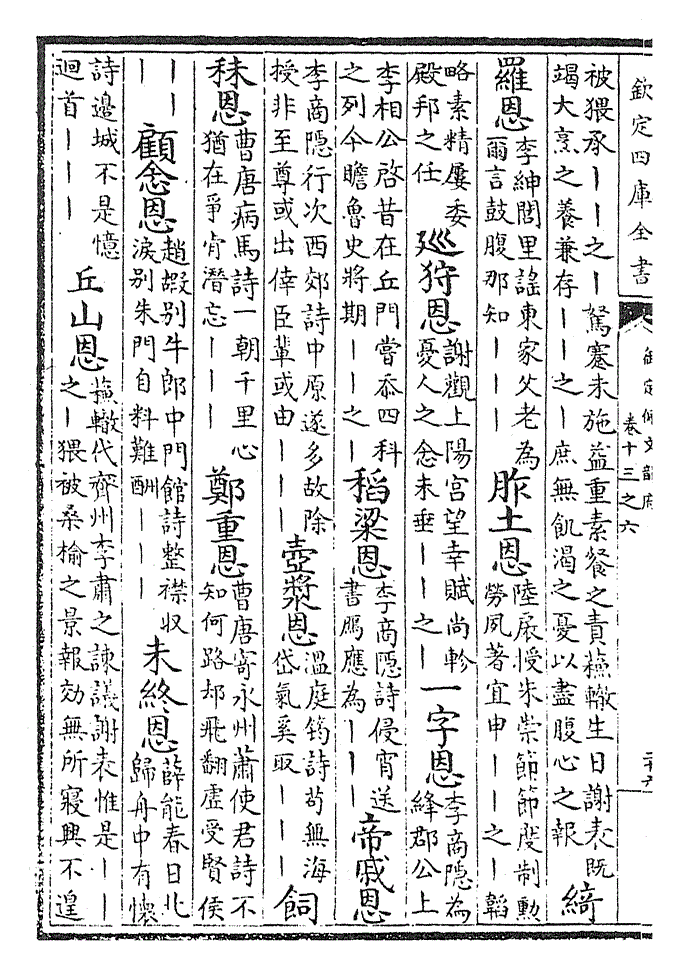 欽定四庫全書
御定佩文韻府
卷十三之六
被猥承——之—駑蹇未施益重素餐之責蘇轍生日謝表既
竭大烹之養兼存——之—庶無飢渴之憂以盡腹心之報
綺
羅恩
李紳閭里謠東家父老為
爾言鼓腹那知———
胙土恩
陸扆授朱崇節節度制勳
勞夙著宜申——之—韜
略素精屢委
殿邦之任
廵狩恩
謝觀上陽宮望幸賦尚軫
憂人之念未垂——之—
一字恩
李商隱為
絳郡公上
李相公啓昔在丘門嘗忝四科
之列今瞻魯史將期——之—
稻梁恩
李商隱詩侵宵送
書鴈應為———
帝戚恩
李商隱行次西郊詩中原遂多故除
授非至尊或出倖臣輩或由———
壺漿恩
溫庭筠詩苟無海
岱氣奚取———
飼
秣恩
曹唐病馬詩一朝千里心
猶在爭肯潛忘———
鄭重恩
曹唐寄永州蕭使君詩不
知何路却飛翻虛受賢侯
——
—
顧念恩
趙嘏別牛郎中門館詩整襟收
淚別朱門自料難酬———
未終恩
薛能春日北
歸舟中有懷
詩邉城不是憶
迴首———
丘山恩
蘇轍代齊州李肅之諫議謝表惟是——
之—猥被桑榆之景報効無所寢興不遑